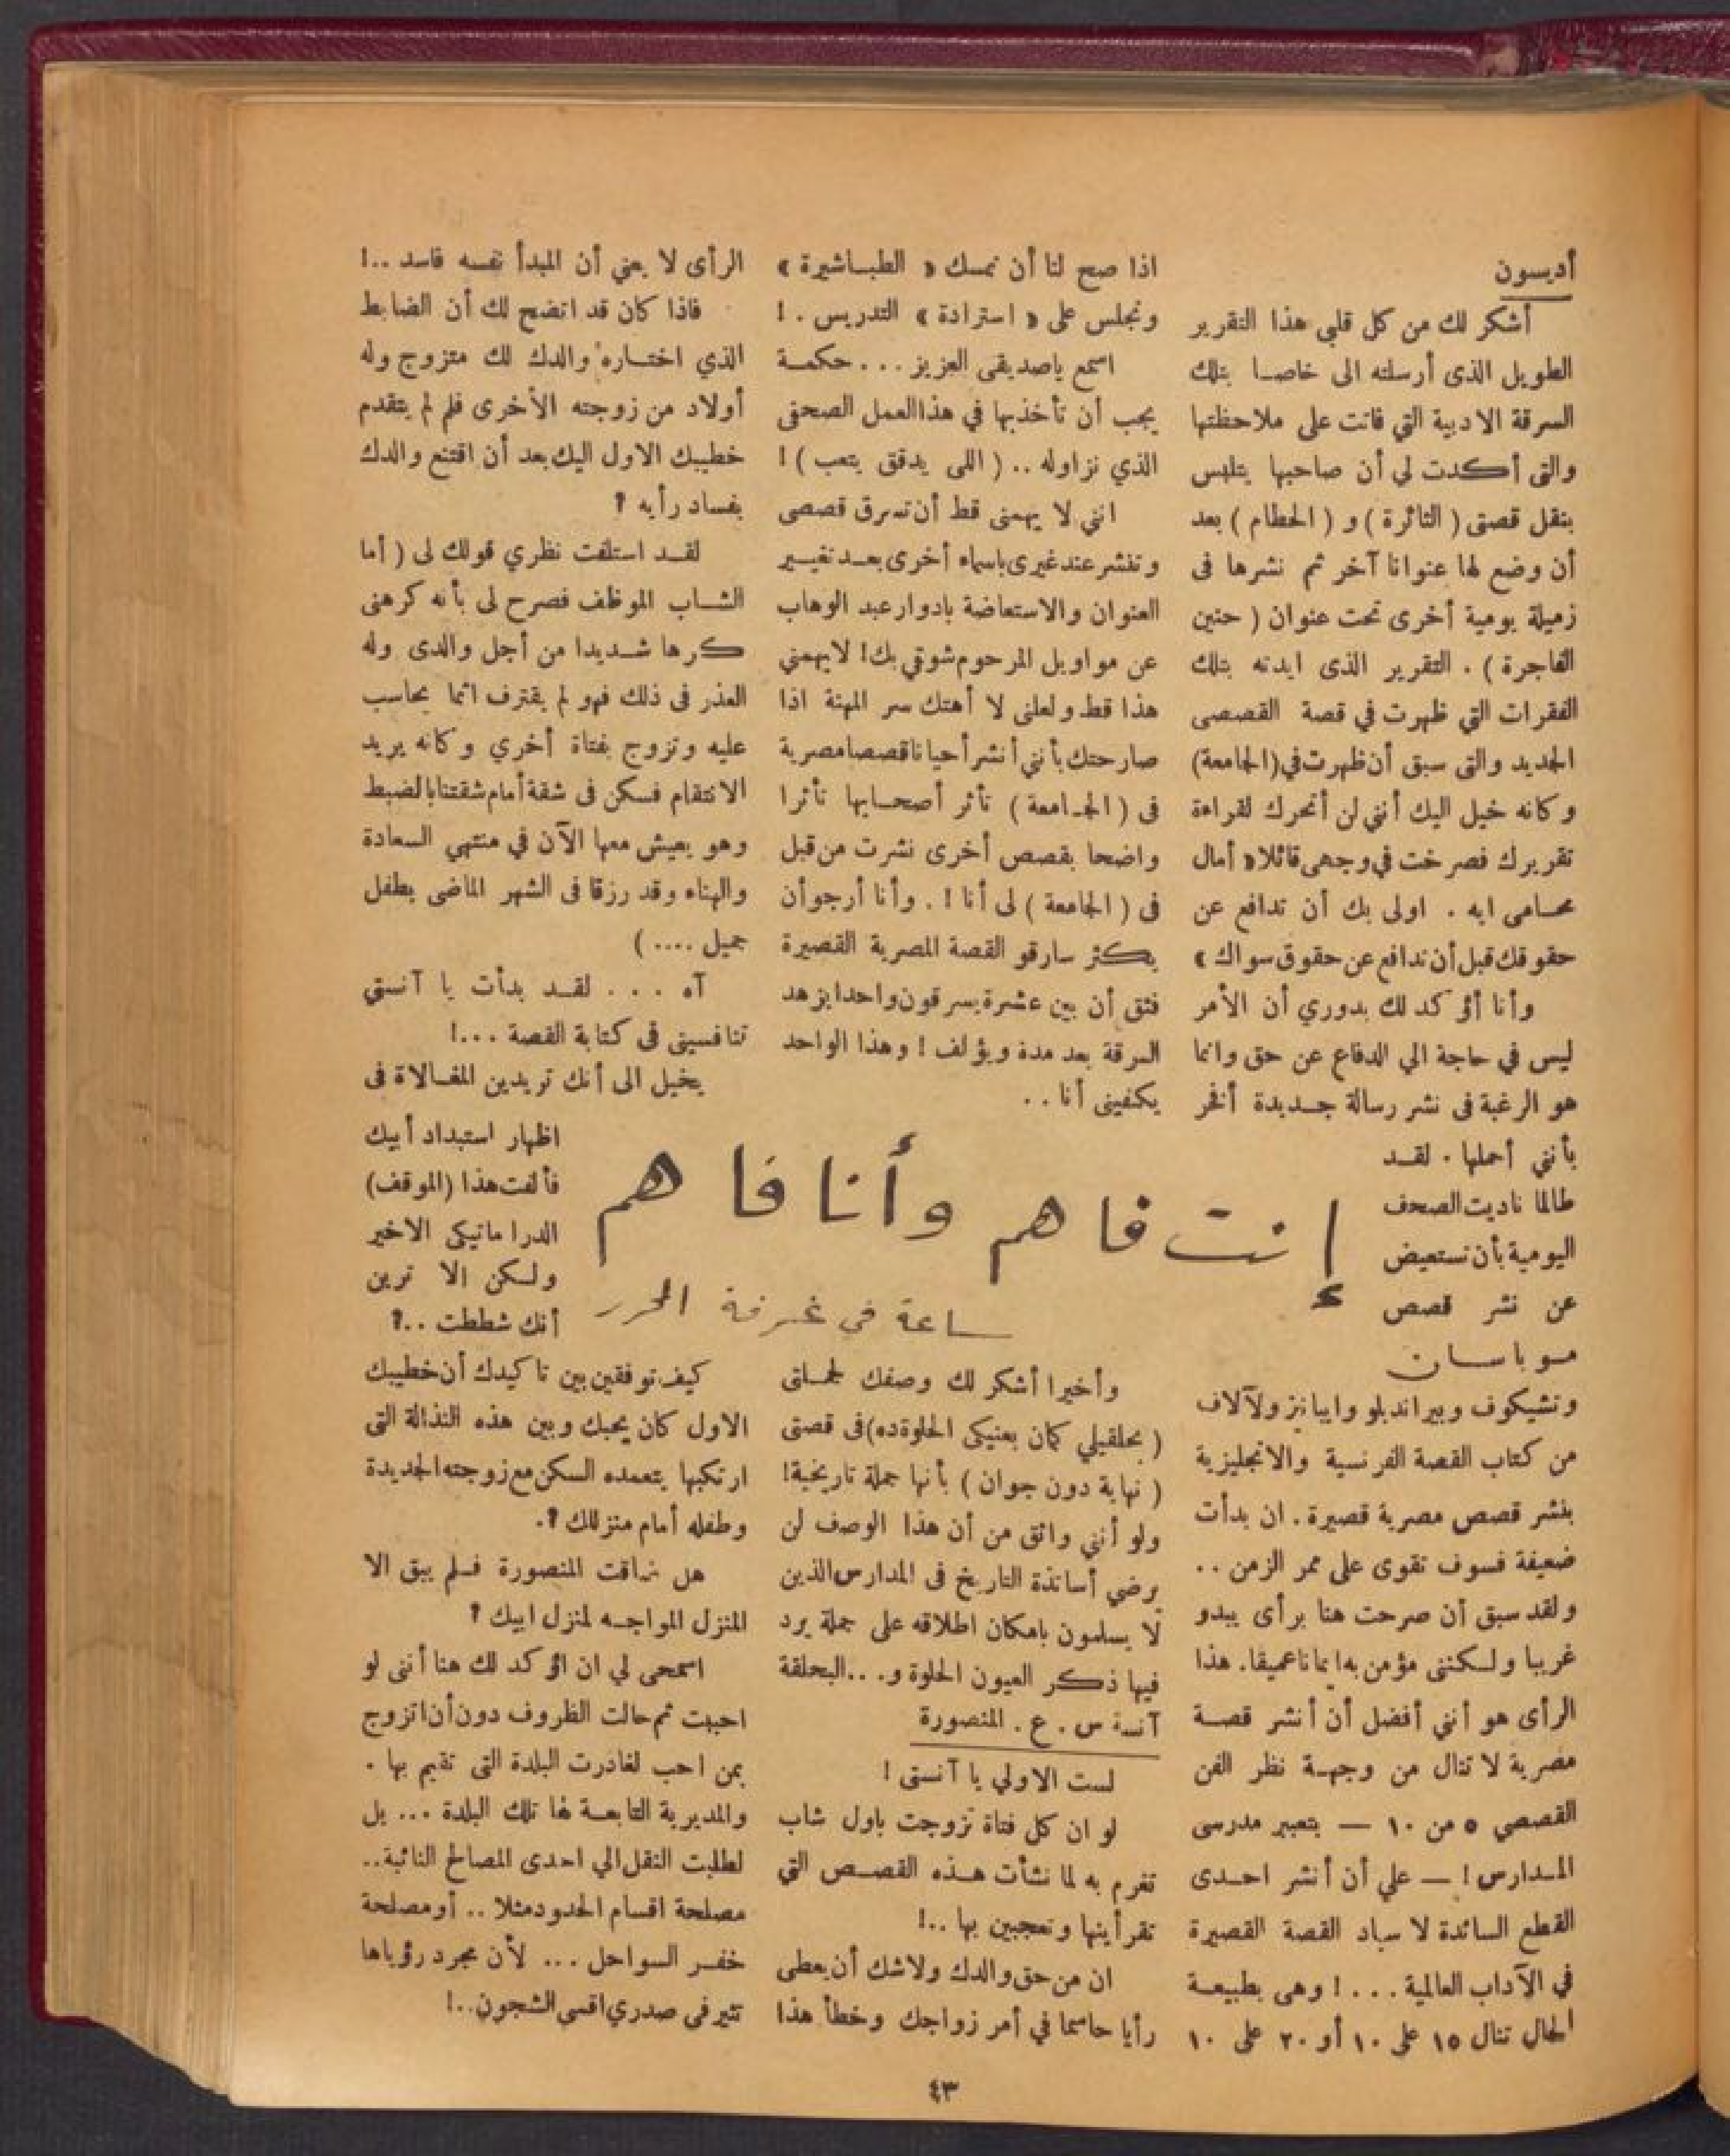 أديسون
أشكر لك من كل قلبي هذا التقرير
الطويل الذى أرسلته الى خاصا بتلك
السرقة الادبية التي فاتت على ملاحظتها
والتى أكدت لي أن صاحبها يتلبس
بنقل قصتى ( الثائرة ) و ( الحطام ) بعد
أن وضع لها عنوانا آخر ثم نشرها فى
زميلة يومية أخرى تحت عنوان ( حنين
الفاجرة ) . التقرير الذى ايدته بتلك
الفقرات التي ظهرت في قصة القصصى
الجديد والتى سبق أن ظهرت في (الجامعة)
وكانه خيل اليك أننى لن أتحرك لقراءة
تقريرك فصرخت في وجهى قائلا « أمال
محامى ايه . اولى بك أن تدافع عن
حقوقك قبل أن تدافع عن حقوق سواك »
وأنا أؤكد لك بدوري أن الأمر
ليس في حاجة الي الدفاع عن حق وانما
هو الرغبة فى نشر رسالة جديدة أفخر
بأننى أحملها . لقد
طالما ناديت الصحف
اليومية بأن تستعيض
عن نشر قصص
موباسان
وتشيكوف وبيراندلو وايبانز ولآلاف
من كتاب القصة الفرنسية والانجليزية
بنشر قصص مصرية قصيرة . ان بدأت
ضعيفة فسوف تقوى على ممر الزمن ..
ولقد سبق أن صرحت هنا برأى يبدو
غريبا ولكننى مؤمن به ايمانا عميقا. هذا
الرأى هو أننى أفضل أن أنشر قصة
مصرية لا تنال من وجهة نظر الفن
القصصى ٥ من ١٠ — بتعبير مدرسى
المدارس ! — علي أن أنشر احدى
القطع السائدة لاسياد القصة القصيرة
في الآداب العالمية . . . ! وهى بطبيعة
الحال تنال ١٥ على ١٠ أو ٢٠ على ١٠
اذا صح لنا أن نمسك « الطباشيرة »
ونجلس على « استرادة » التدريس . !
اسمع ياصديقى العزيز . . . حكمة
يجب أن تأخذبها في هذا العمل الصحفى
الذي نزاوله .. ( اللى يدقق يتعب ) !
اننى لا يهمنى قط أن تسرق قصصى
وتنشر عند غيرى باسماء أخرى بعد تغيير
العنوان والاستعاضة بادوار عبد الوهاب
عن مواويل المرحوم شوقي بك! لايهمني
هذا قط ولعلنى لا أهتك سر المهنة اذا
صارحتك بأننى أنشر أحيانا قصصا مصرية
فى ( الجامعة ) تأثر أصحابها تأثرا
واضحا بقصص أخرى نشرت من قبل
فى ( الجامعة ) لى أنا ! . وأنا أرجو أن
يكثر سارقو القصة المصرية القصيرة
فثق أن بين عشرة يسرقون واحدا يزهد
السرقة بعد مدة ويؤلف ! وهذا الواحد
يكفينى أنا . .
إنت فاهم وأنا فاهم
ساعة في غرفة المحرر
وأخيرا أشكر لك وصفك لجملتى
( بحلقيلي كمان بعنيكى الحلوة ده) فى قصتى
( نهاية دون جوان ) بأنها جملة تاريخية!
ولو أننى واثق من أن هذا الوصف لن
يرضي أساتذة التاريخ فى المدارس الذين
لا يسلمون بامكان اطلاقه على جملة يرد
فيها ذكر العيون الحلوة و. ..البحلقة
آنسة س . ع . المنصورة
لست الاولي يا آنستى !
لو ان كل فتاة تزوجت باول شاب
تغرم به لما نشأت هذه القصص التي
تقرأينها وتعجبين بها ..!
ان من حق والدك ولاشك أن يعطى
رأيا حاسما في أمر زواجك وخطأ هذا
الرأى لا يعني أن المبدأ نفسه فاسد ..!
فاذا كان قد اتضح لك أن الضابط
الذي اختاره والدك لك متزوج وله
أولاد من زوجته الأخرى فلم لم يتقدم
خطيبك الاول اليك بعد أن اقتنع والدك
بفساد رأيه ؟
لقد استلفت نظري قولك لى ( أما
الشاب الموظف فصرح لى بأنه كرهنى
كرها شديدا من أجل والدى وله
العذر فى ذلك فهو لم يقترف اثما يحاسب
عليه وتزوج بفتاة أخري وكانه يريد
الانتقام فسكن فى شقة أمام شقتنا بالضبط
وهو يعيش معها الآن في منتهي السعادة
والهناء وقد رزقا فى الشهر الماضى بطفل
جميل .... )
آه . . . لقد بدأت يا آنستي
تنافسينى في كتابة القصة ...!
يخيل الى أنك تريدين المغالاة فى
اظهار استبداد أبيك
فألفت هذا (الموقف)
الدراماتيكى الاخير
ولكن الا ترين
أنك شططت ..؟
كيف توفقين بين تاكيدك أن خطيبك
الاول كان يحبك وبين هذه النذالة التى
ارتكبها بتعمده السكن مع زوجته الجديدة
وطفله أمام منزلك ؟.
هل ضاقت المنصورة فلم يبق الا
المنزل المواجه لمنزل ابيك ؟
اسمحى لي ان اؤكد لك هنا أننى لو
احببت ثم حالت الظروف دون أن اتزوج
بمن احب لغادرت البلدة التى تقيم بها .
والمديرية التابعة لها تلك البلدة ... بل
لطلبت النقل الي احدى المصالح النائية..
مصلحة اقسام الحدود مثلا .. أو مصلحة
خفر السواحل ... لأن مجرد رؤياها
تثير فى صدري اقسى الشجون..!
٤٣